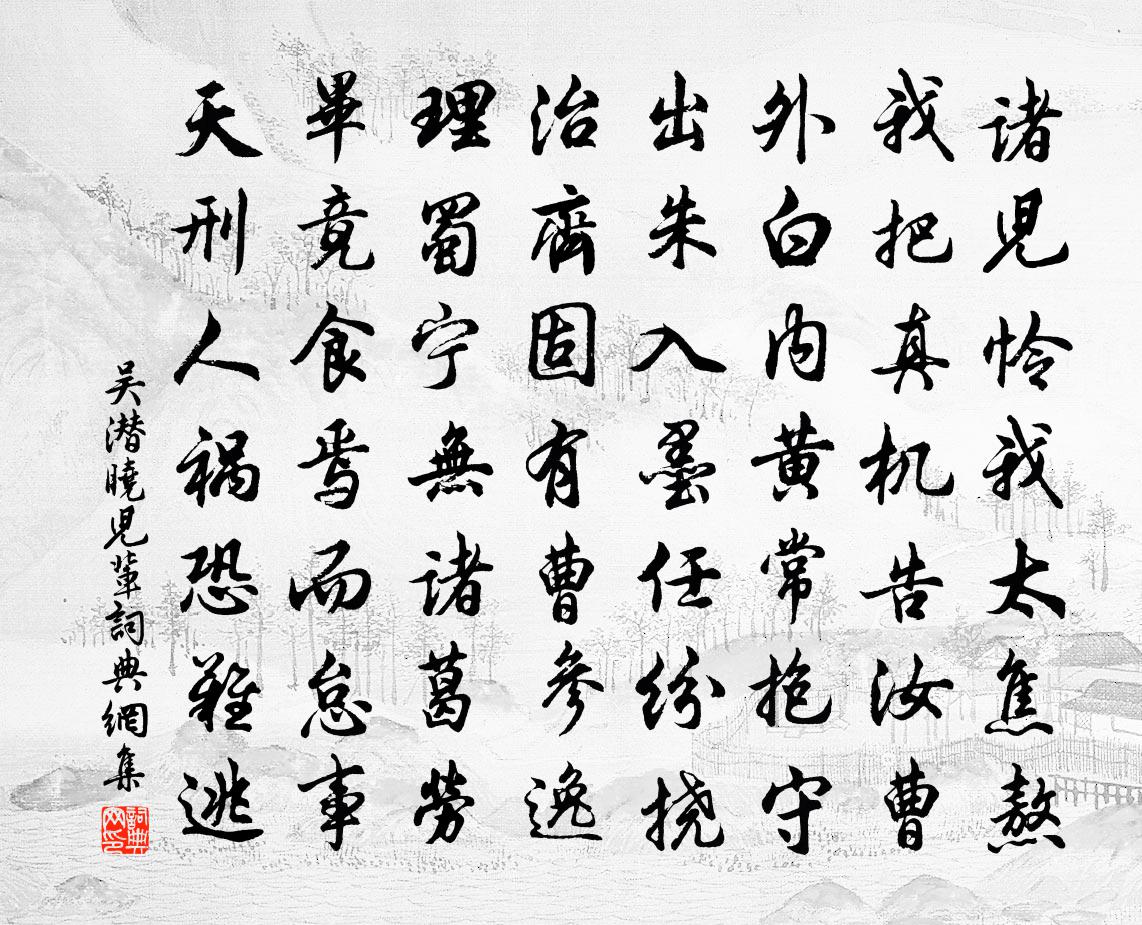 诸児怜我太焦熬
我把真机告汝曹
外白内黄常抱守
出朱入墨任纷挠
治齊固有曹参逸
理蜀宁無诸葛劳
畢竟食焉而怠事
天刑人祸恐难逃
吴潜曉児輩詞典網集
詞典网印